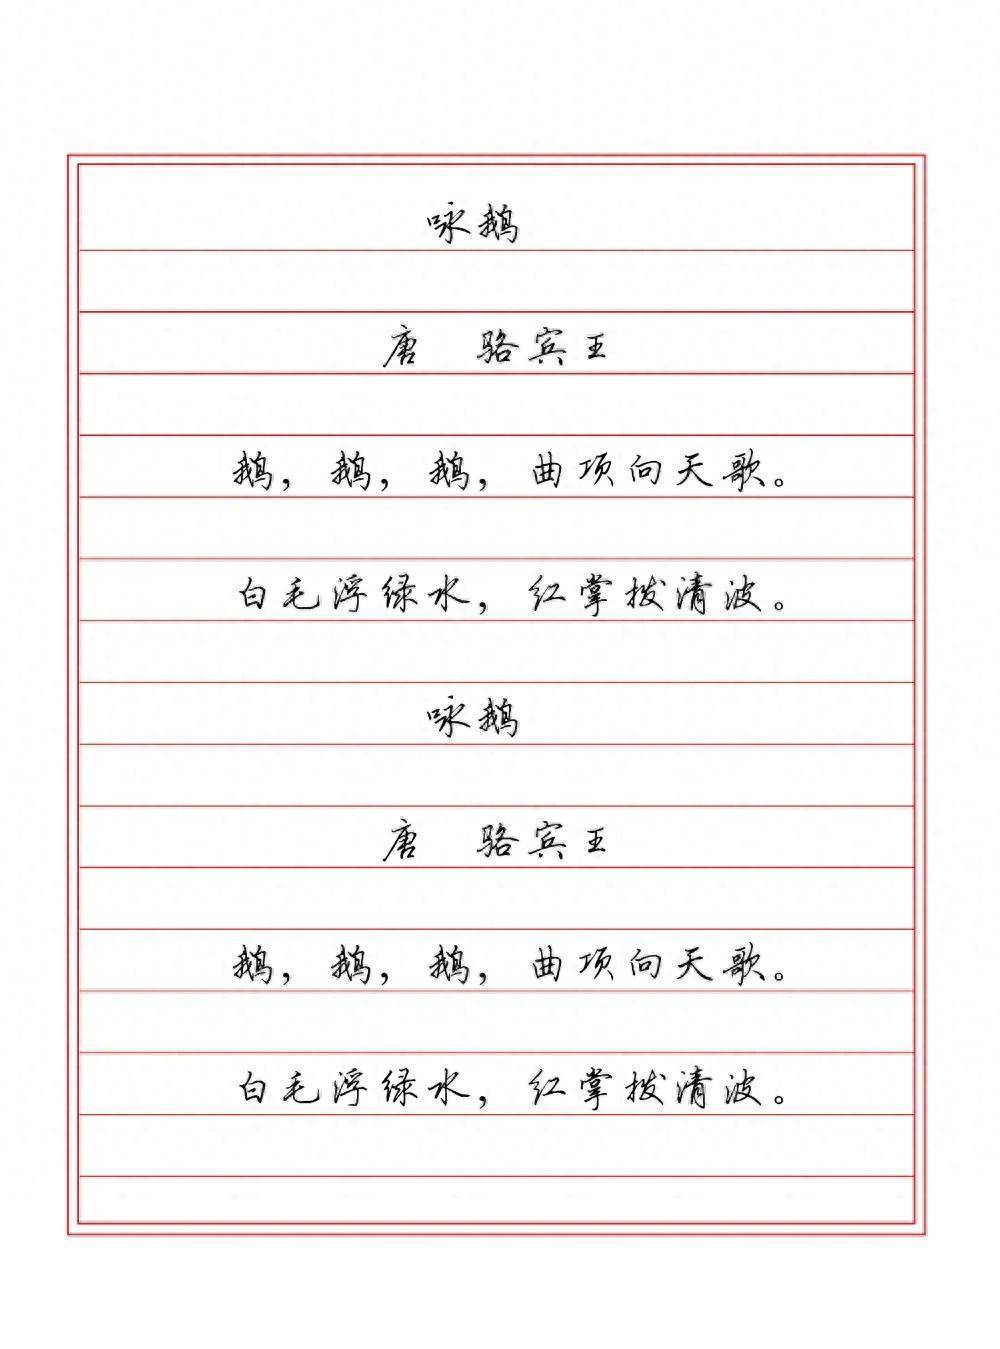 咏鹅
唐 骆宾王
鹅，鹅，鹅，曲项向天歌。
白毛浮绿水，红掌拨清波。
咏鹅
唐 骆宾王
鹅，鹅，鹅，曲项向天歌。
白毛浮绿水，红掌拨清波。